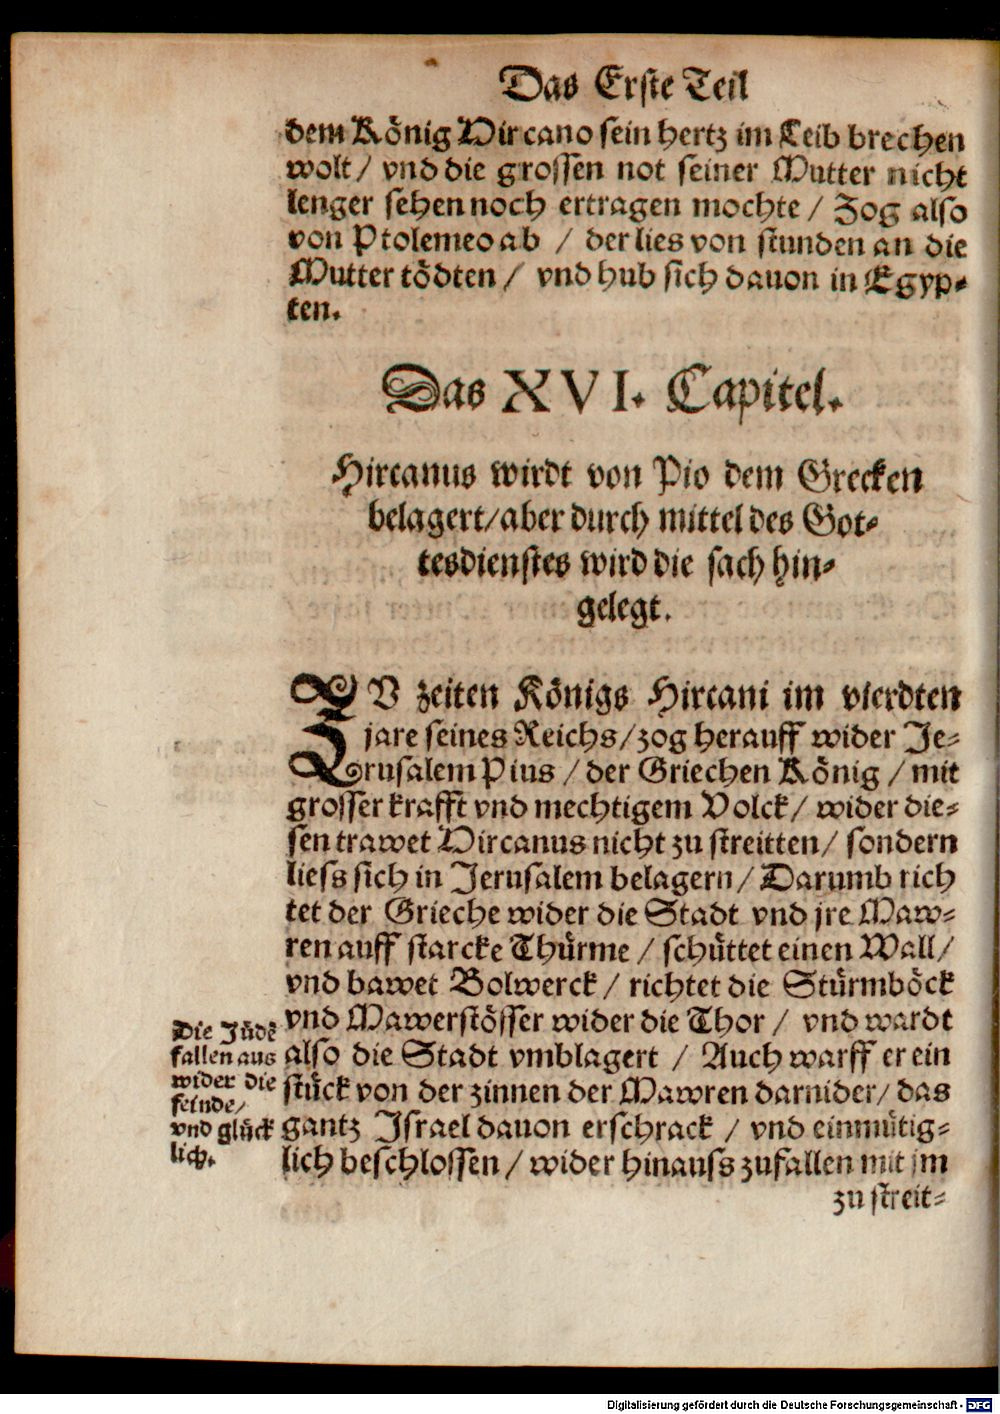 Das Erste Teil
dem König Hircano sein hertz im Leib brechen
wolt / vnd die grossen not seiner Mutter nicht
lenger sehen noch ertragen mochte / Zog also
von Ptolemeo ab / der lies von stunden an die
Mutter tödten / vnd hub sich dauon in Egyp-
ten.
Das XVI. Capitel.
Hircanus wirdt von Pio dem Grecken
belagert / aber durch mittel des Got-
tesdienstes wird die sach hin-
gelegt.
ZV zeiten Königs Hircani im vierdten
jare seines Reichs / zog herauff wider Je-
rusalem Pius / der Griechen König / mit
grosser krafft vnd mechtigem Volck / wider die-
sen trawet Hircanus nicht zu streitten / sondern
liess sich in Jerusalem belagern / Darumb rich
tet der Grieche wider die Stadt vnd jre Maw-
ren auff starcke Thürme / schüttet einen Wall /
vnd bawet Bolwerck / richtet die Stürmböck
vnd Mawerstösser wider die Thor / vnd wardt
also die Stadt vmblagert / Auch warff er ein
stück von der zinnen der Mawren darnider / das
gantz Israel dauon erschrack / vnd einmütig-
lich beschlossen / wider hinauss zufallen mit jm
zu streit-
Die Jüdē
fallen aus
wider die
feinde /
vnd glück
lich.
Digitalisierung gefördert durch die Deutsche Forschungsgemeinschaft - DFG